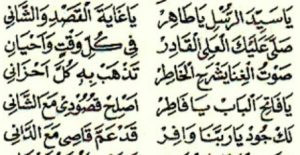 يَا سَيِّدَ الرُّسْلِ يَا طَاهِرْ يَا غَايَةَ الْقَصْدِ وَالشَّانِي
صَلَّى عَلَيْكَ الْعَلِي الْقَادِرْ فِي كُلِّ وَقْتٍ وَاَحْيَانِ
صَوْتُ الْغِنَا يَشْرَحُ الْخَاطِرْ تَذْهَبْ بِهِ كُلُّ اَحْزَانِي
يَا فَاتِحَ الْبَابِ يَا فَاطِرْ اَصْلِحْ قُصُوْدِيْ مَعَ الشَّانِي
لَكَ جُوْدُ يَا رَبَّنَا وَافِرْ قَدْ عَمَّ قَاصِى مَعَ الدَّانِي